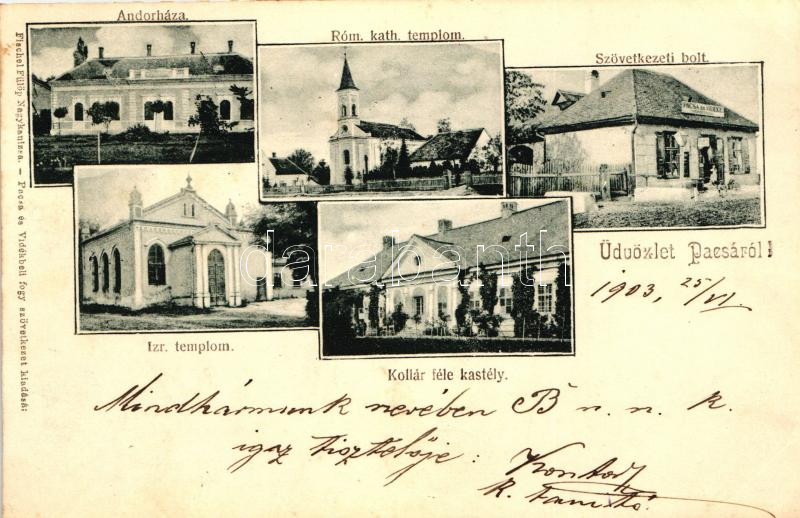 Andorháza.
Róm. kath. templom.
Szövetkezeti bolt.
PACSA és VIDÉKE
Izr. templom.
Kollár féle kastély.
Üdvözlet Pacsáról!
1903, 25/VI.
Mindhármunk nevében B n. n. k.
igaz tisztelője:
k. tanító
Fischel Fülöp Nagykanizsa. – Pacsa és Vidékbeli fogy szövetkezet kiadása:
darabanth